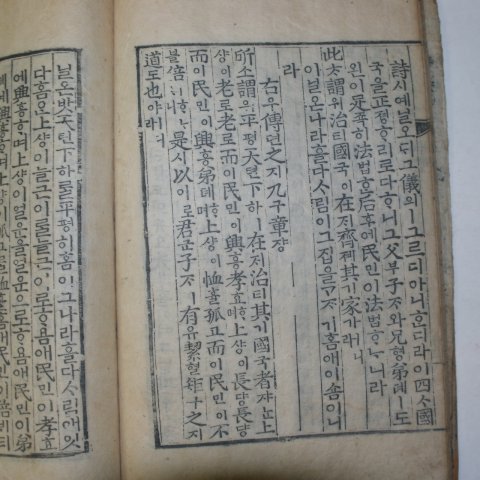 詩시예닐오ᄃᆡ그儀의ㅣ그르디아니혼디라이四ᄉᆞ國
국을正졍ᄒᆞ리로다ᄒᆞ니그父부子ᄌᆞ와兄형弟뎨ㅣ도
왼이足죡히法법ᄒᆞᆫ後후에民민이法법ᄒᆞᄂᆞ니라
此ᄎᆞㅣ謂위治티國국이在ᄌᆡ齊졔其기家가ㅣ니라
이닐온나라ᄒᆞᆯ다ᄉᆞ림이그집을ᄀᆞᄌᆞ기홈애이숌이니
라
右우ᄂᆞᆫ傳뎐之지九구章쟝
所소謂위平평天텬下하ㅣ在ᄌᆡ治티其기國국者쟈ᄂᆞᆫ上
샹이老로老로而이民민이興흥孝효ᄒᆞ며上샹이長댱長댱
而이民민이興흥弟뎨ᄒᆞ며上샹이恤휼孤고而이民민이不
블倍패ᄒᆞᄂᆞ니是시以이로君군子ᄌᆞㅣ有유絜혈矩구之지
道도也야ㅣ니라
닐온밧天텬下하ᄅᆞᆯ平평히홈이그나라ᄒᆞᆯ다ᄉᆞ림애잇
다홈은上샹이늘근이ᄅᆞᆯ늘근이로홈애民민이孝효
애興흥ᄒᆞ며上샹이얼운을얼운으로홈애民민이弟
뎨예興흥ᄒᆞ며上샹이孤고ᄅᆞᆯ恤휼홈애民민이倍패티